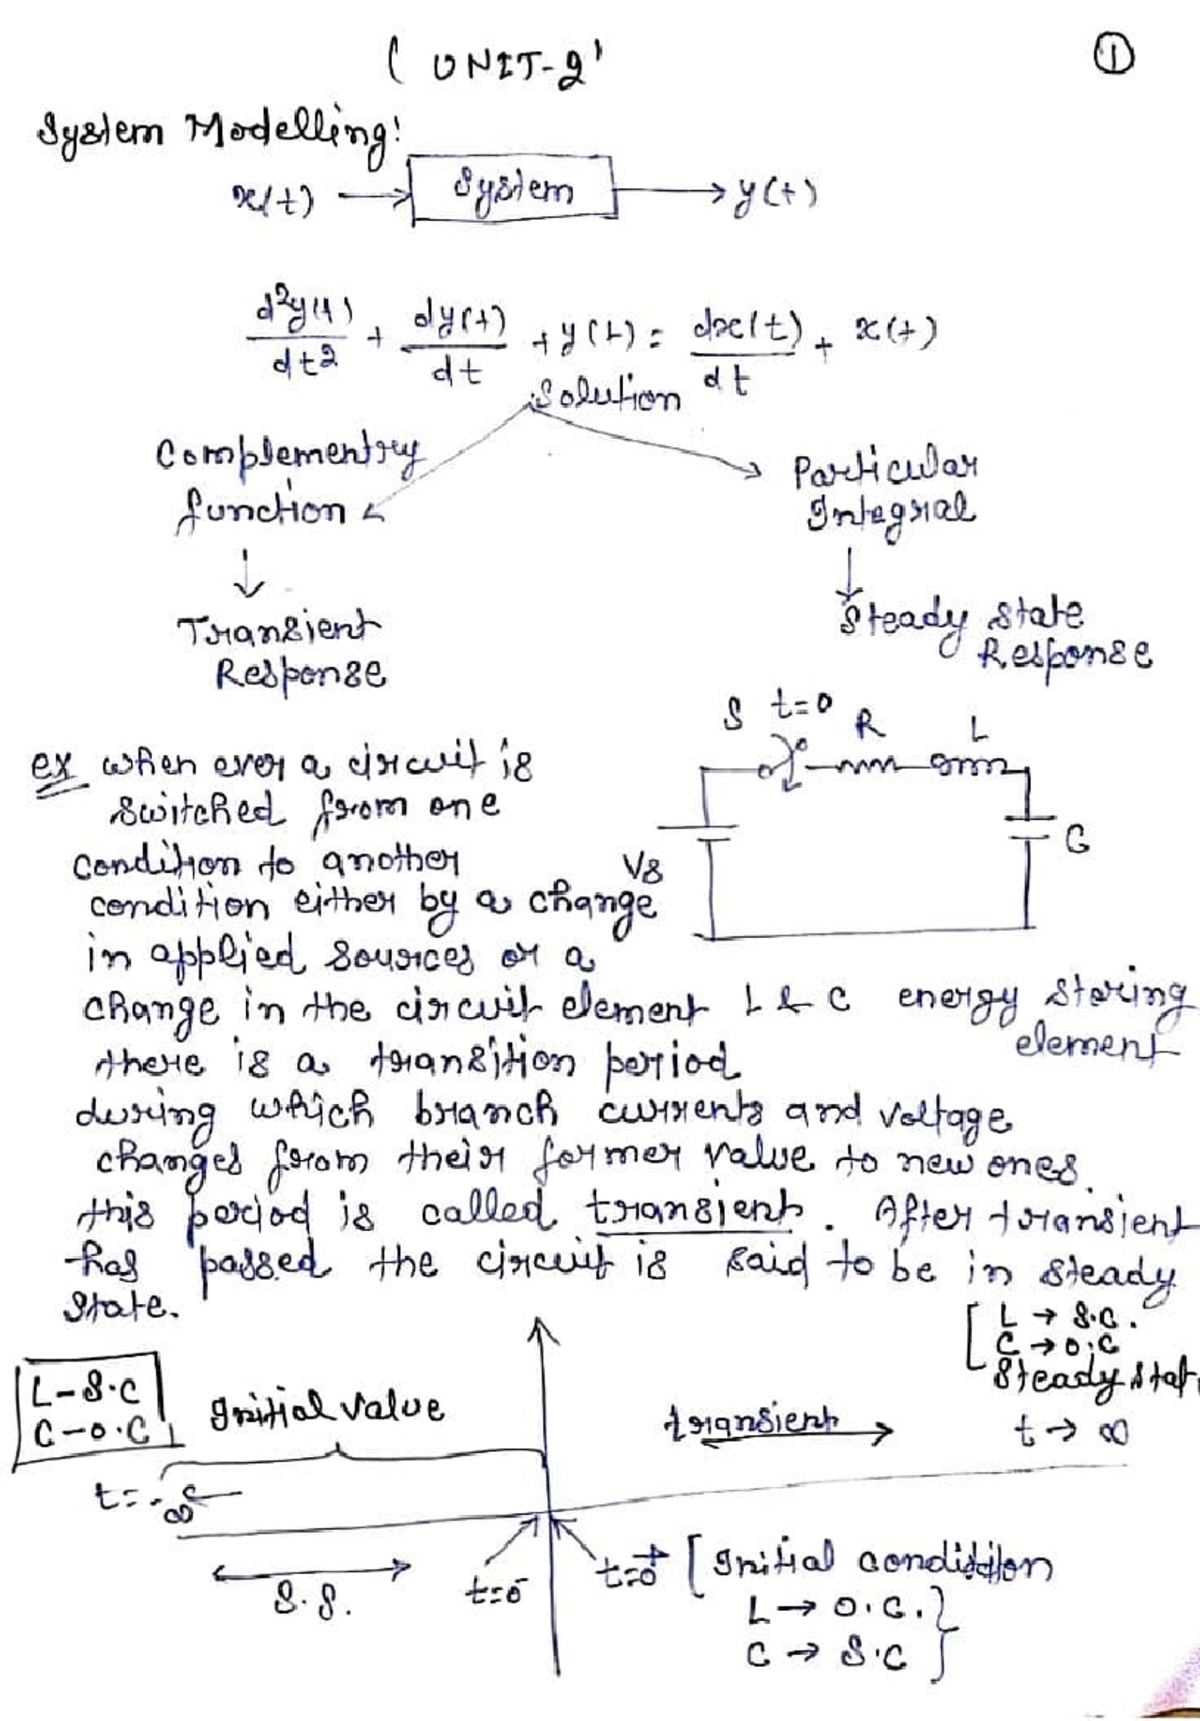 ( UNIT-2'
1
System Modelling:
x(t) → System → y(t)
d²y(t)/dt2 + dy(t)/dt + y(t) = dx(t)/dt + x(t)
Solution
Complementry
function
Particular
Integral
↓
↓
Transient
Response
Steady State
Response
S t=0 R L
Vs
C
ex when ever a circuit is
switched from one
condition to another
condition either by a change
in applied sources or a
change in the circuit element
L & C energy storing
element
there is a transition period
during which branch currents and voltage
changes from their former value to new ones.
this period is called transient. After transient
has passed the circuit is said to be in steady
state.
[ L → S.C.
C → O.C
Steady stat
L-S.C
C-O.C
Initial value
transient
t → ∞
t=-∞
S.S.
t=0⁻
t=0⁺
[ Initial condition
L → O.C. }
C → S.C